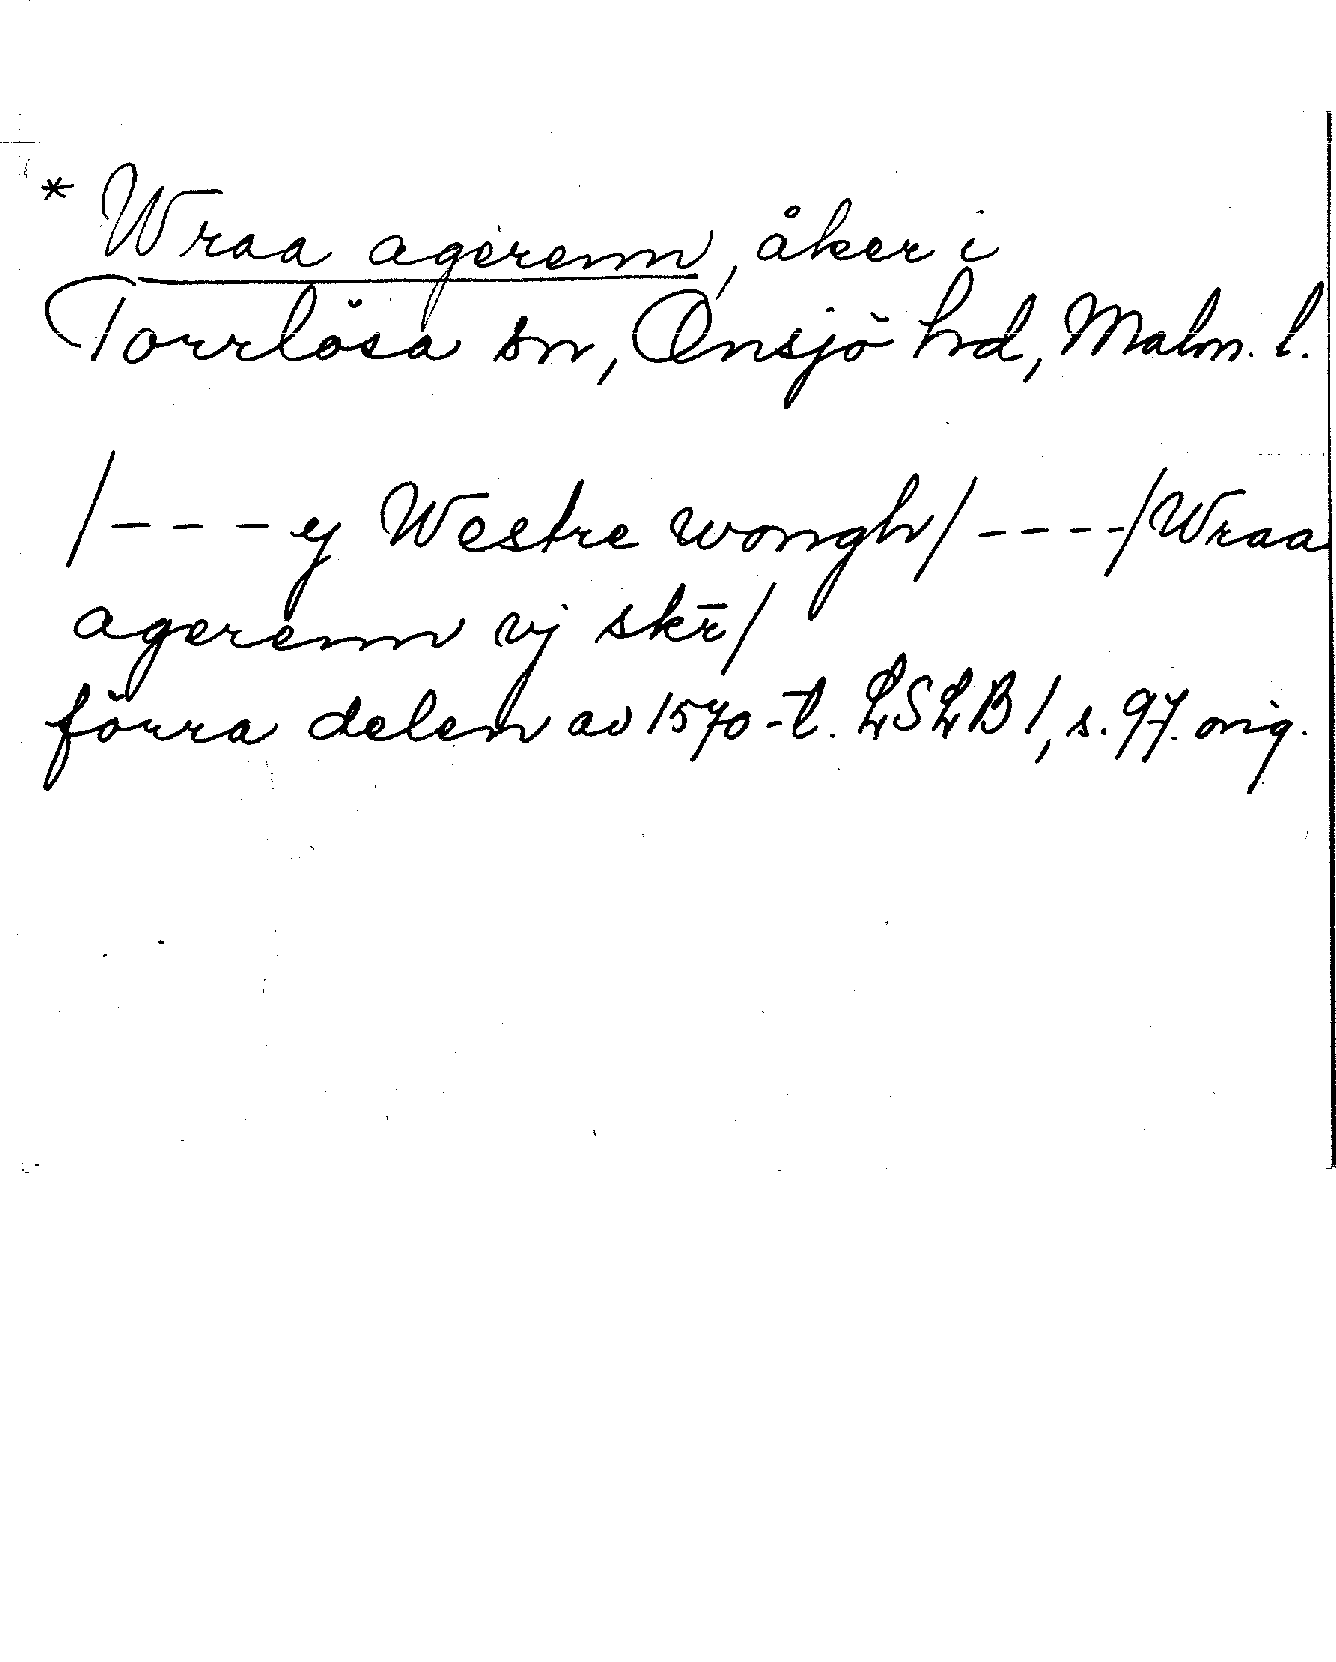 * Wraa agerenn, åker i
Torrlösa sn, Onsjö hd, Malm. l.
/---y Westre wongh/----/Wraa
agerenn vj skr̄/
förra delen av 1570-t. LSLB 1, s. 97. orig.